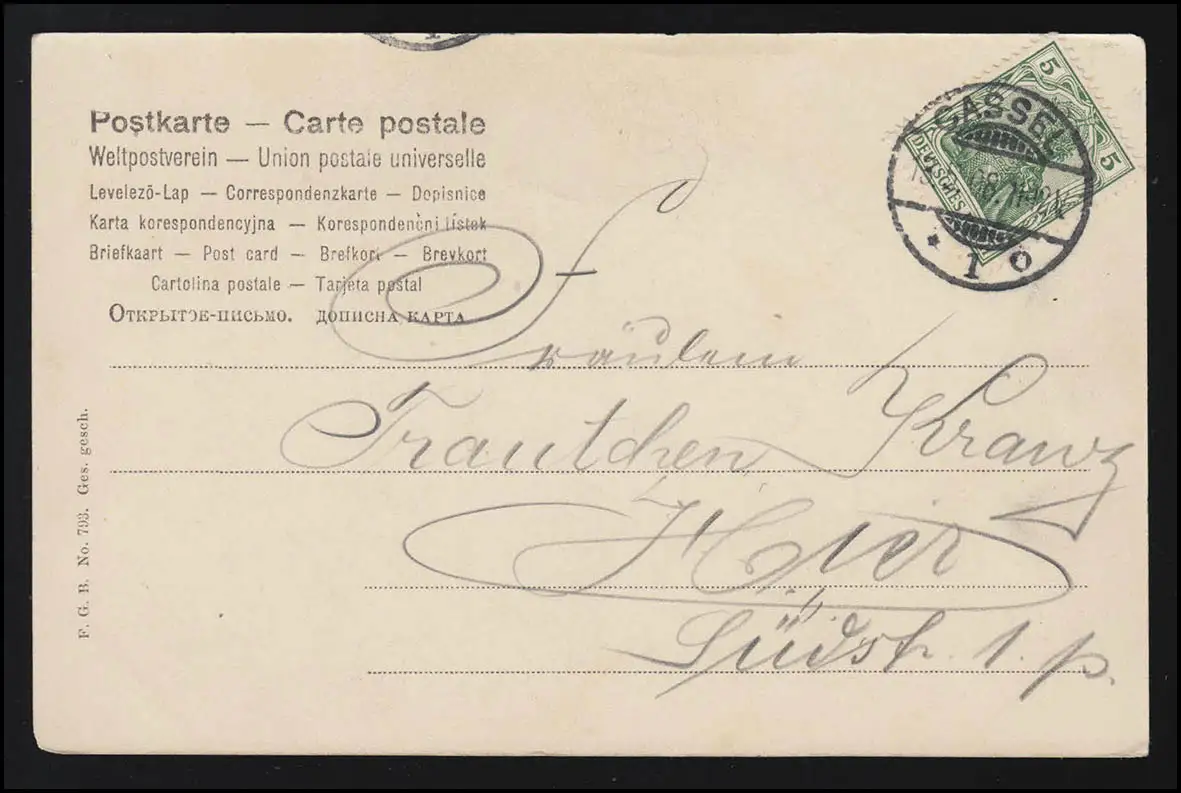 Postkarte — Carte postale
Weltpostverein — Union postale universelle
Levelezō-Lap — Correspondenzkarte — Dopisnice
Karta korespondencyjna — Korespondenčni lístek
Briefkaart — Post card — Brefkort — Brevkort
Cartolina postale — Tarjeta postal
Открытэе-письмо. дописна карта
5
5
DEUTSCHES
CASSEL
1 0
Fräulein
Trautchen Kranz
Hier
Südstr. 1. p.
F. G. B. No. 793. Ges. gesch.